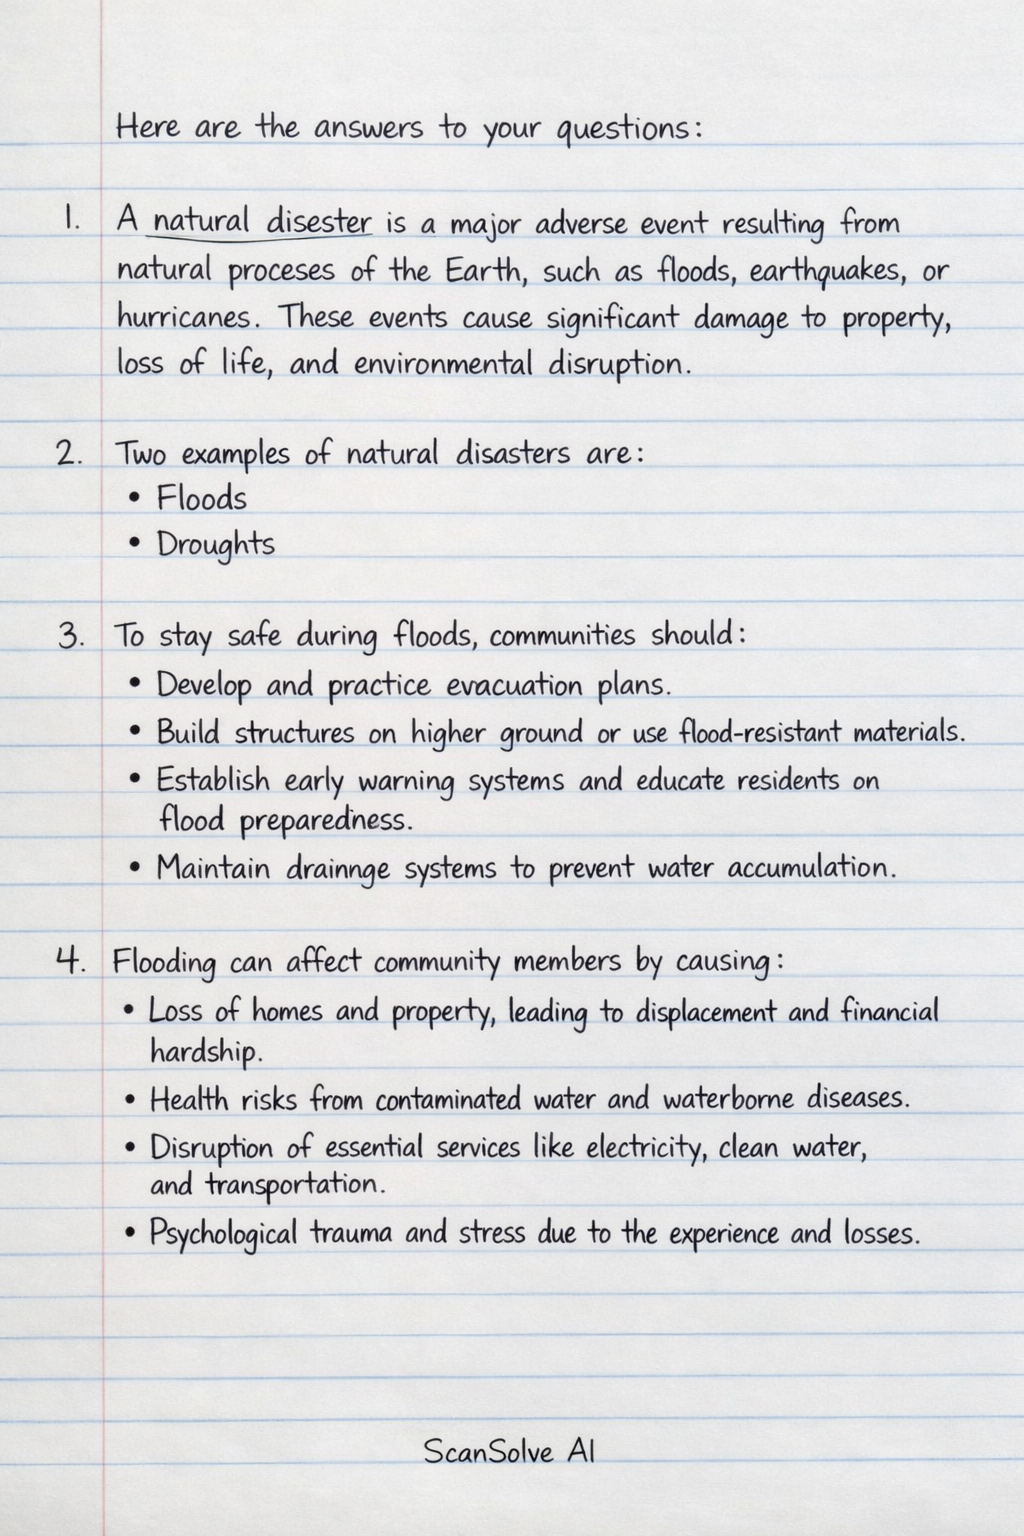 Here are the answers to your questions:
1. A natural disester is a major adverse event resulting from
natural proceses of the Earth, such as floods, earthquakes, or
hurricanes. These events cause significant damage to property,
loss of life, and environmental disruption.
2. Two examples of natural disasters are:
• Floods
• Droughts
3. To stay safe during floods, communities should:
• Develop and practice evacuation plans.
• Build structures on higher ground or use flood-resistant materials.
• Establish early warning systems and educate residents on
flood preparedness.
• Maintain drainnge systems to prevent water accumulation.
4. Flooding can affect community members by causing:
• Loss of homes and property, leading to displacement and financial
hardship.
• Health risks from contaminated water and waterborne diseases.
• Disruption of essential services like electricity, clean water,
and transportation.
• Psychological trauma and stress due to the experience and losses.
ScanSolve AI